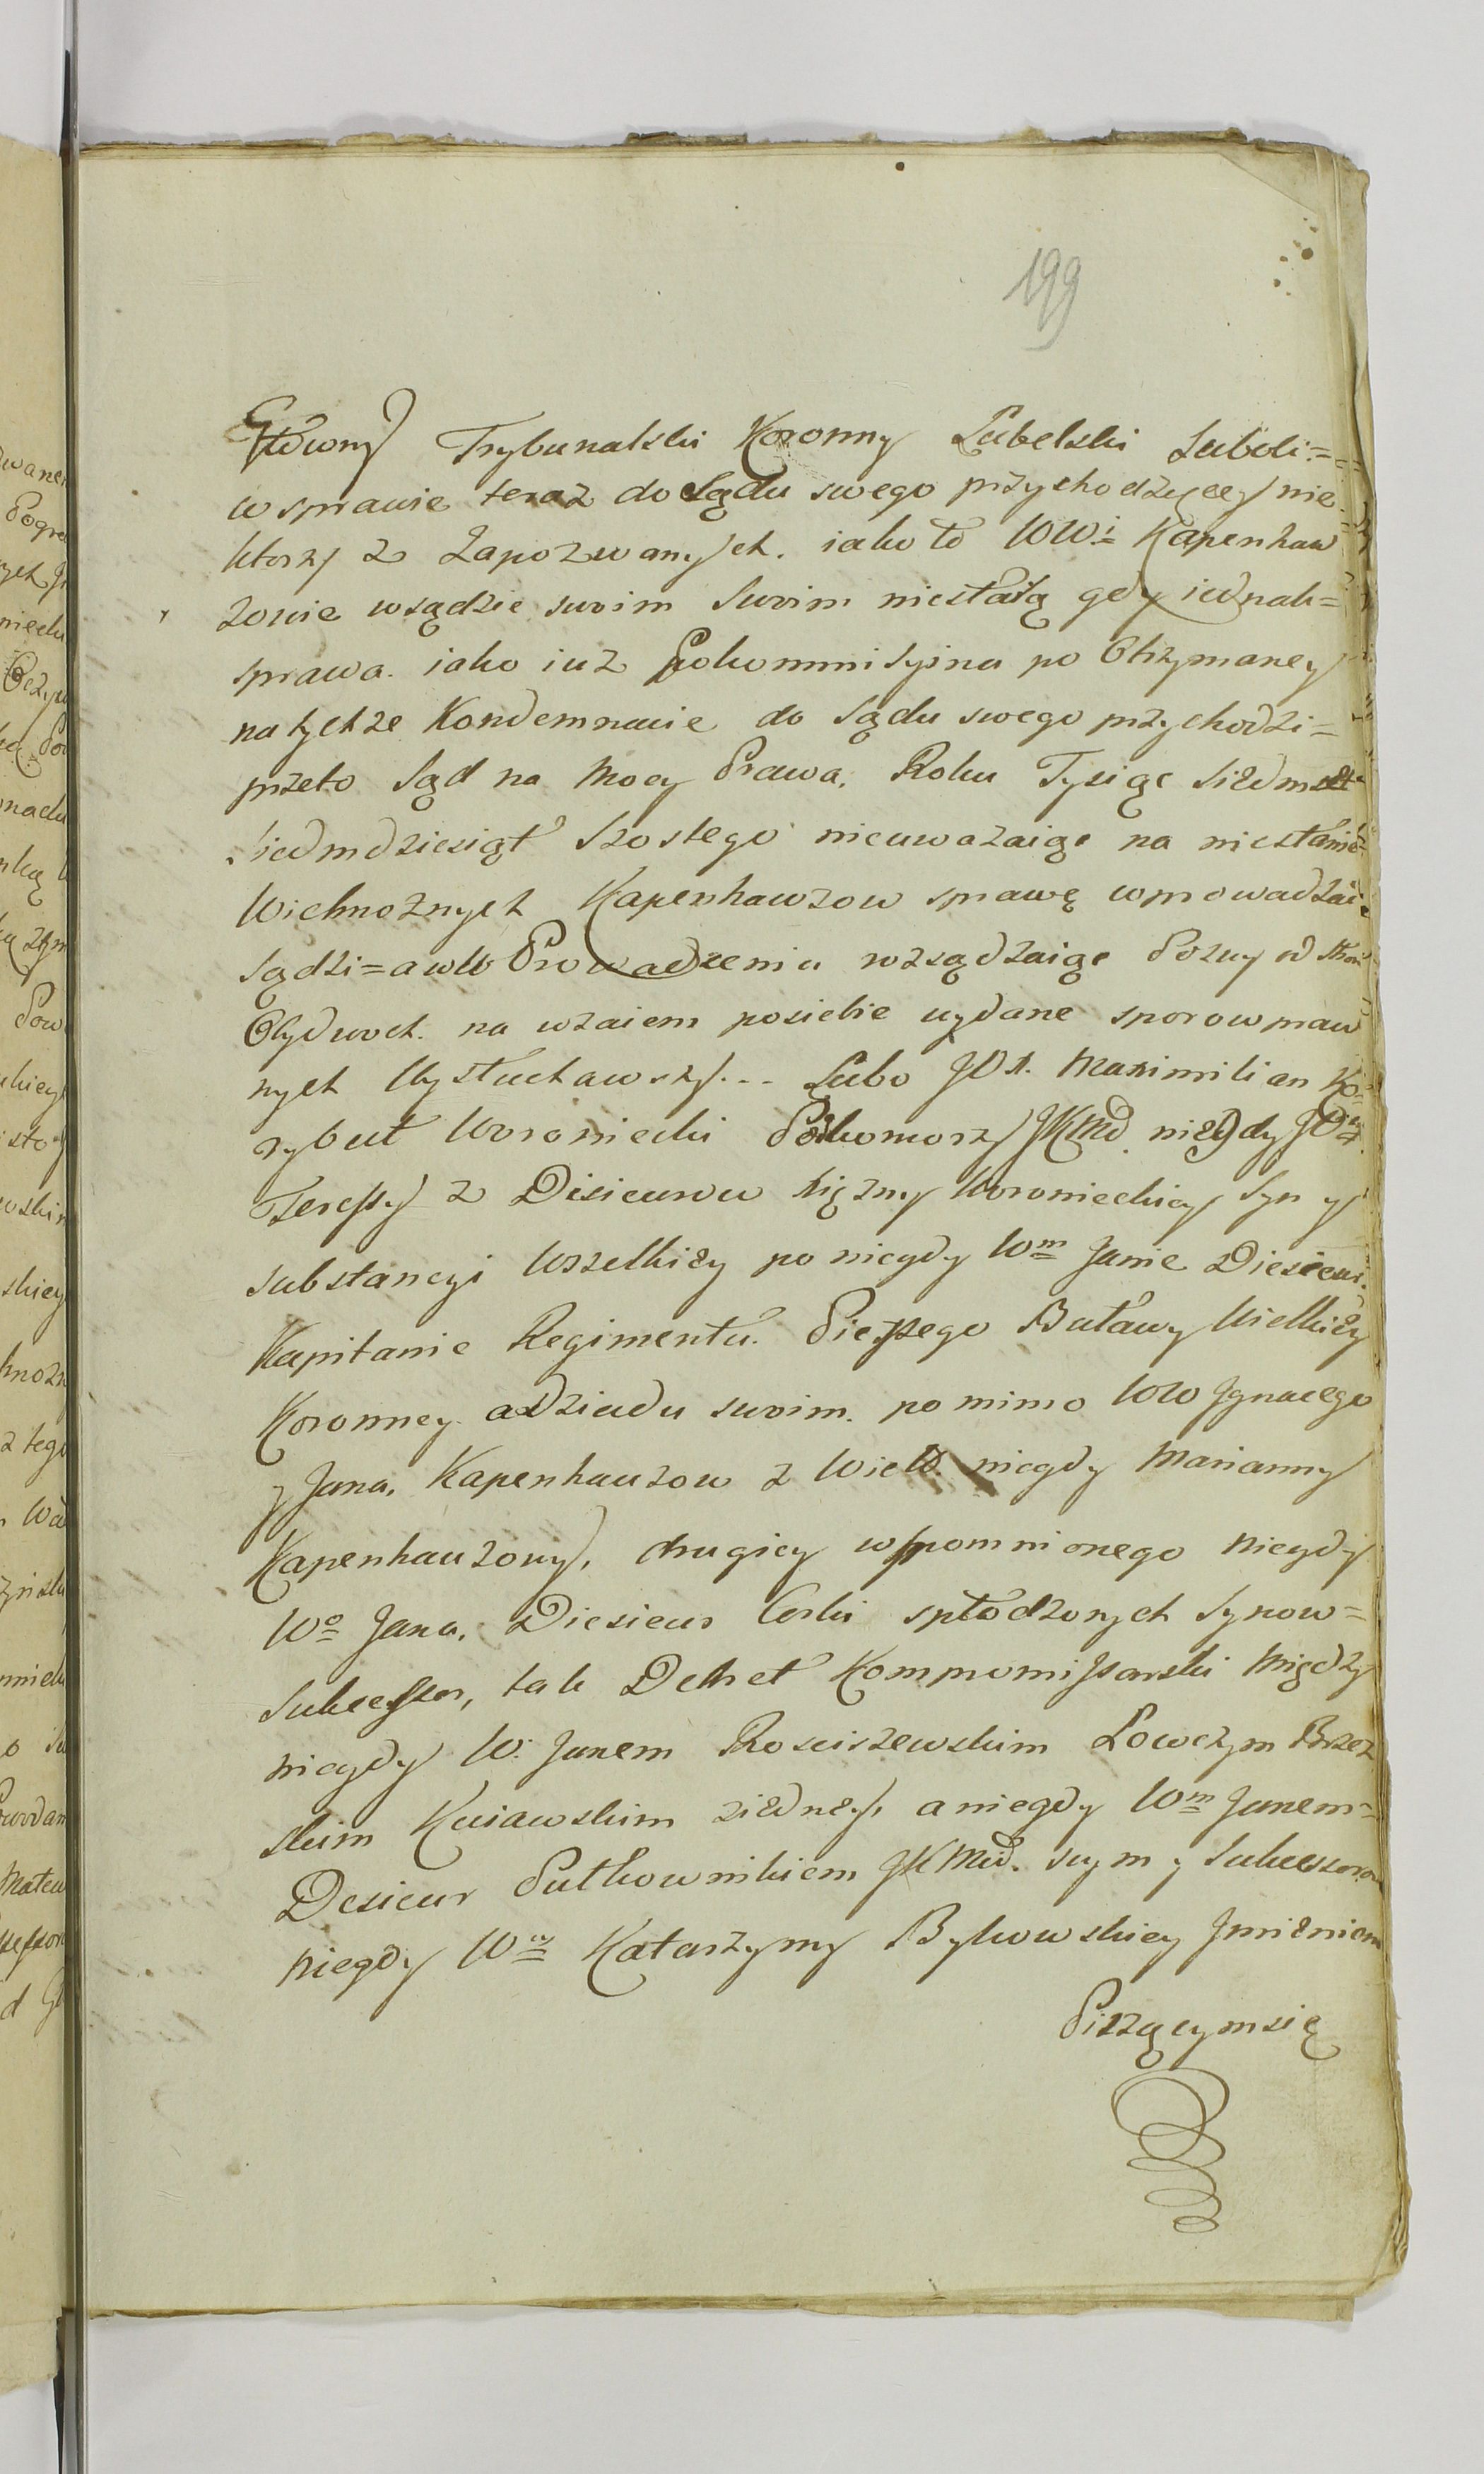 199
Głowny Trybunalski Koronny Lubelski Luboli=
w sprawie teraz do Sądu swego przychodzącey nie
ktorzy z Zapozwanych. iako to WWi Kapenhaw
zowie wsądzie swoim Swoim niestaią gdy iednak=
sprawa. iako iuz Pokommisyina po Otrzymaney
natychze Kondemnacie do Sądu swego przychodzi=
przeto Sąd na Mocy Prawa, Roku Tysiąc Siedmset
Siedmdziesiąt Szostego nieuwazaiąc na niestanie
Wielmoznych Kapenhawzow sprawę wprowadzać
Sądzi= a w Prowadzeniu rozsądzaiąc Pozwy od Stron
Obydwoch. na wzaiem posiebie wydane sporow praw
nych Wysłuchawszy... Lubo JOX. Maximilian Ko=
rybut Woroniecki Podkomorzy JKMci. niegdy JO
Teressy z Diesieurow Xiężny Woronieckiey Syn y
substancyi Wszelkiey po niegdy Wm Janie Diesieur.
Kapitanie Regimentu. Pieszego Buławy Wielkiey
Koronney. a Dziadu swoim. po mimo WW Jgnacego
y Jana, Kapenhauzow z Wiel. niegdy Marianny
Kapenhauzowy, drugiey wspomnionego niegdy
Wo Jana, Diesieur Corki spłodzonych Synow=
Sukcessor, tak Dekret Kompromissarski Między
niegdy W. Janem Rosciszewskim Łowczym Brzez
skim Kuiawskim ziedney, a niegdy Wm Janem=
Desieur Pułkownikiem JKMci. swym y Sukcessorow
niegdy Wey Katarzyny Bykowskiey Jmieniem
Piszącymsię